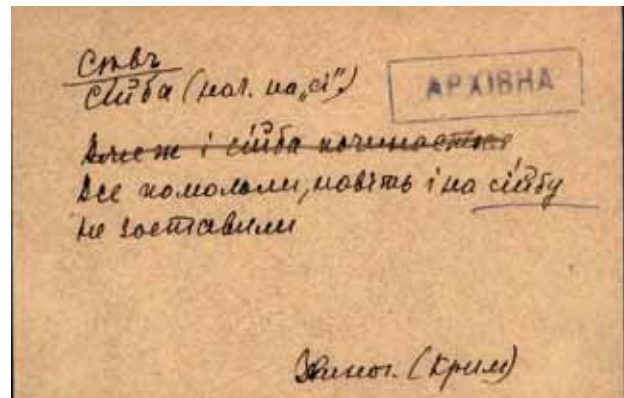 Ствч
сíйба (наг. на „сі”)
АРХІВНА
Вже ж і сійба починається
Все помололи, навіть і на сíйбу
не зоставили
Звиног. (Крим)